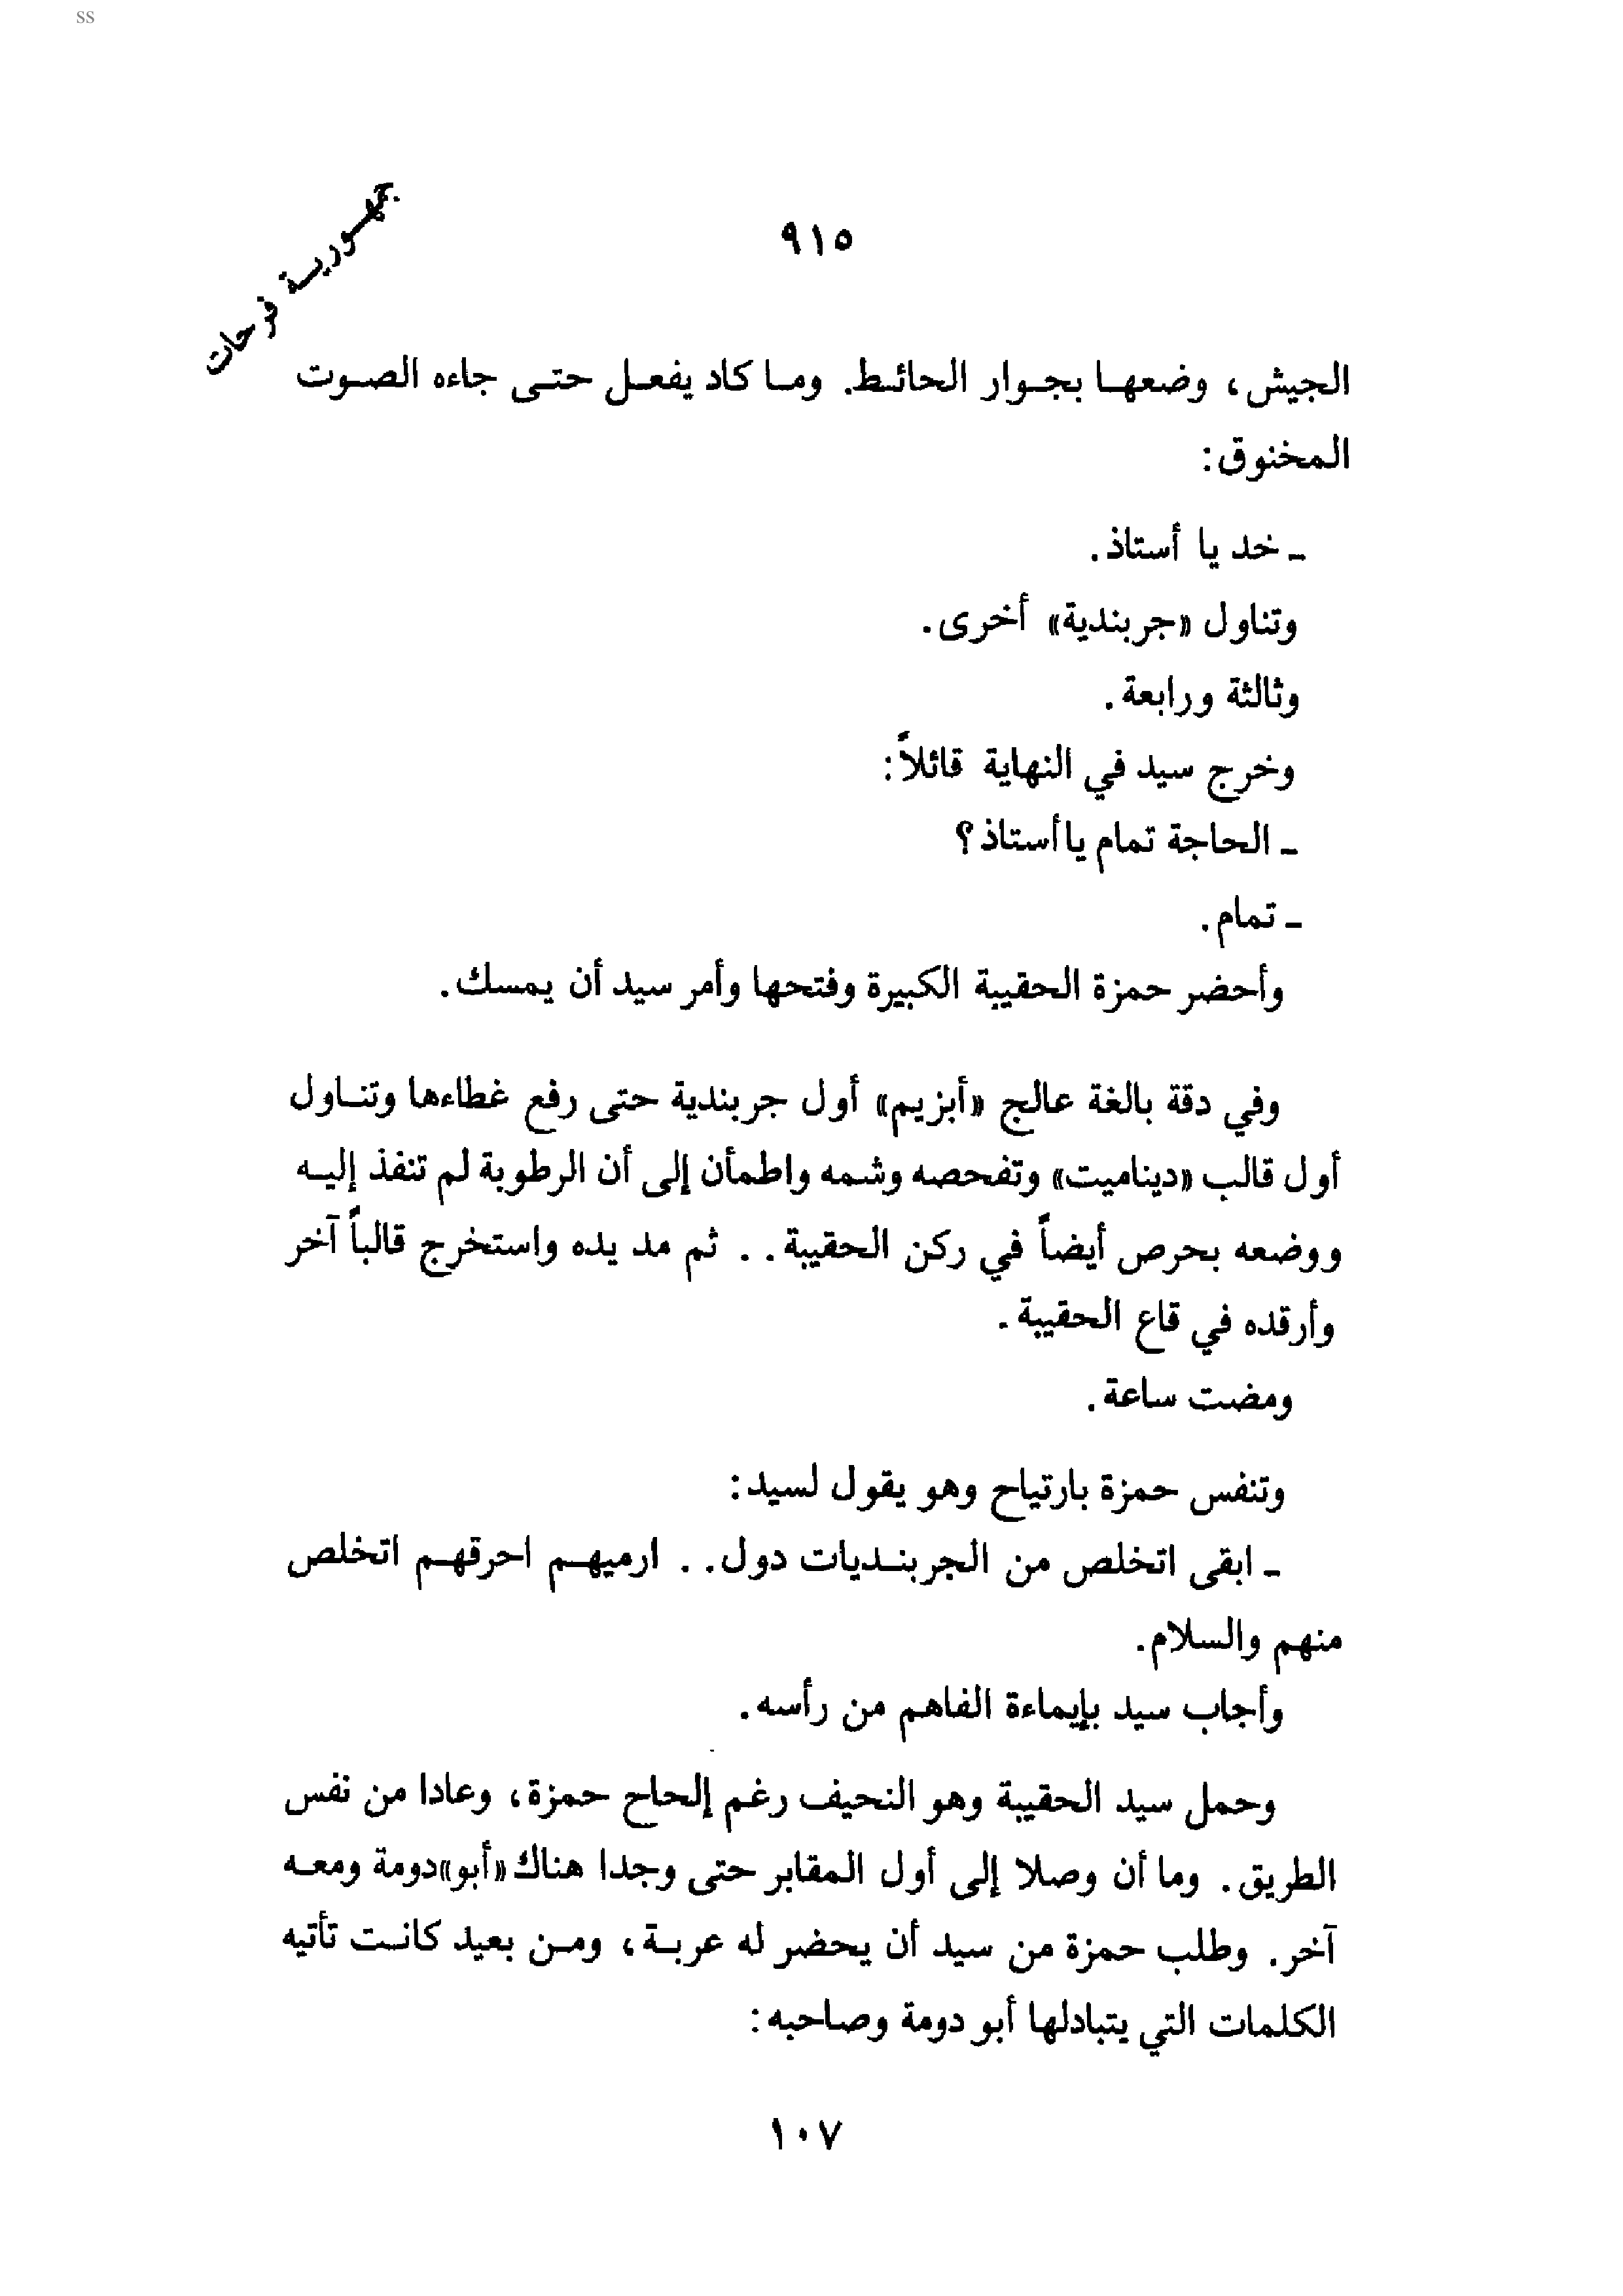 ss
جمهورية فرحات
٩١٥
الجيش، وضعها بجوار الحائط. وما كاد يفعل حتى جاءه الصوت
المخنوق:
ـ خد يا أستاذ.
وتناول «جربندية» أخرى.
وثالثة ورابعة.
وخرج سيد في النهاية قائلاً:
ـ الحاجة تمام يا أستاذ؟
ـ تمام.
وأحضر حمزة الحقيبة الكبيرة وفتحها وأمر سيد أن يمسك.
وفي دقة بالغة عالج «أبزيم» أول جربندية حتى رفع غطاءها وتناول
أول قالب «ديناميت» وتفحصه وشمه واطمأن إلى أن الرطوبة لم تنفذ إليه
ووضعه بحرص أيضاً في ركن الحقيبة.. ثم مد يده واستخرج قالباً آخر
وأرقده في قاع الحقيبة.
ومضت ساعة.
وتنفس حمزة بارتياح وهو يقول لسيد:
ـ ابقى اتخلص من الجربنديات دول.. ارميهم احرقهم اتخلص
منهم والسلام.
وأجاب سيد بإيماءة الفاهم من رأسه.
وحمل سيد الحقيبة وهو النحيف رغم إلحاح حمزة، وعادا من نفس
الطريق. وما أن وصلا إلى أول المقابر حتى وجدا هناك «أبو» دومة ومعه
آخر. وطلب حمزة من سيد أن يحضر له عربة، ومن بعيد كانت تأتيه
الكلمات التي يتبادلها أبو دومة وصاحبه:
١٠٧